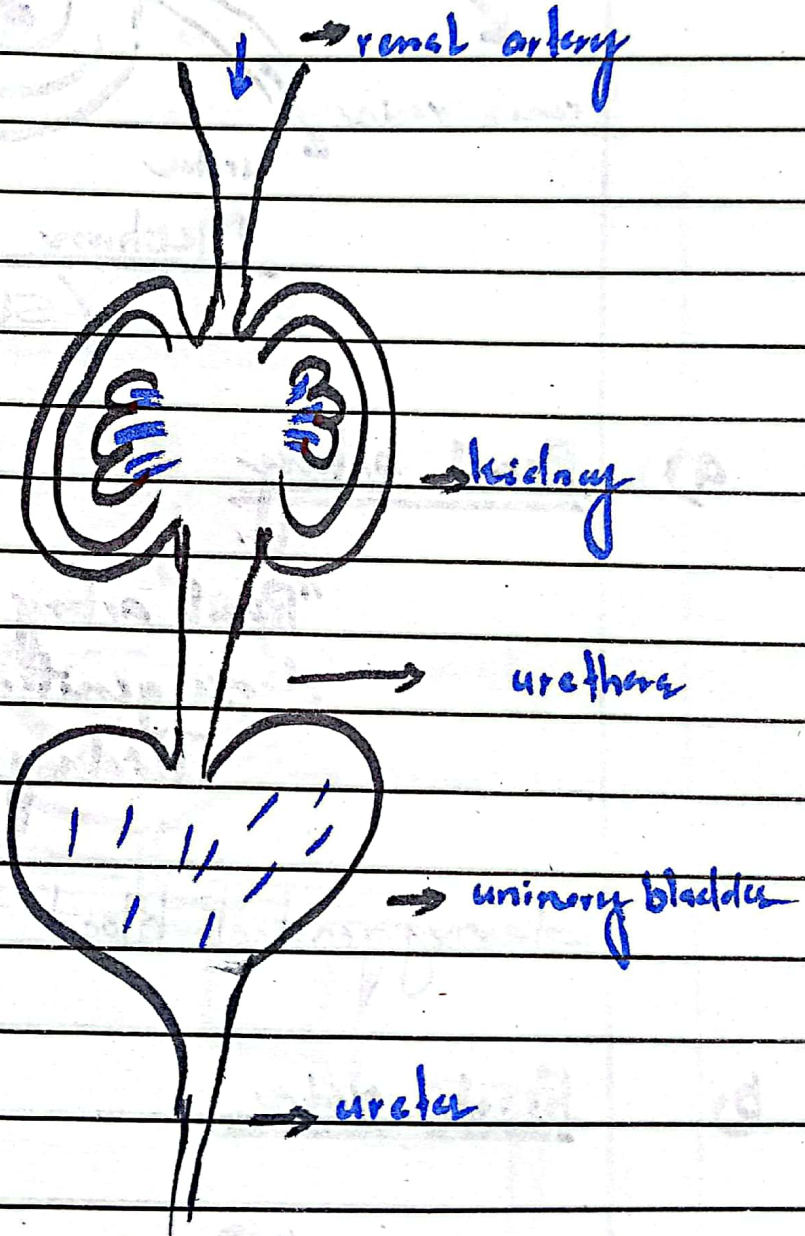 renal artery
kidney
urethere
uninery bladder
ureter